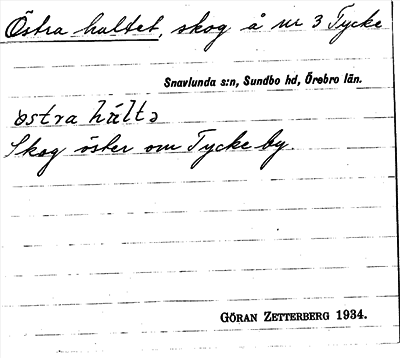 Östra hultet, skog å nr 3 Tycke
Snavlunda s:n, Sundbo hd, Örebro län.
östra húltə
Skog öster om Tycke by
GÖRAN ZETTERBERG 1934.